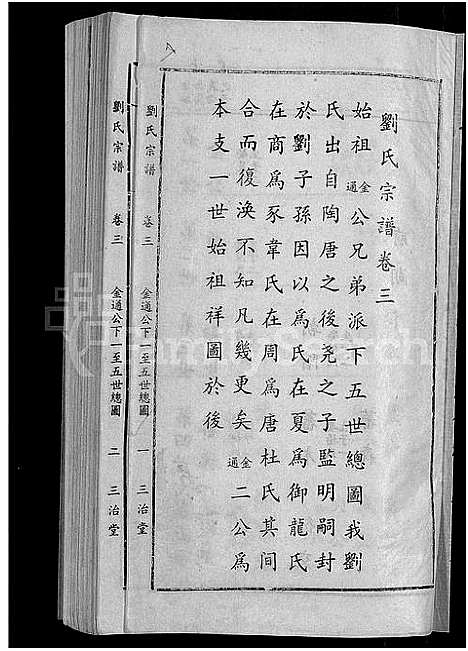 劉氏宗譜卷三
始祖金通公兄弟派下五世總圖我劉
氏出自陶唐之後堯之子監明嗣封
於劉子孫因以爲氏在夏爲御龍氏
在商爲豕韋氏在周爲唐杜氏其間
合而復渙不知凡幾更矣金通二公爲
本支一世始祖祥圖於後
劉氏宗譜 卷三 金通公下一至五世總圖 一 三治堂
劉氏宗譜 卷三 金通公下一至五世總圖 二 三治堂
FamilySearch